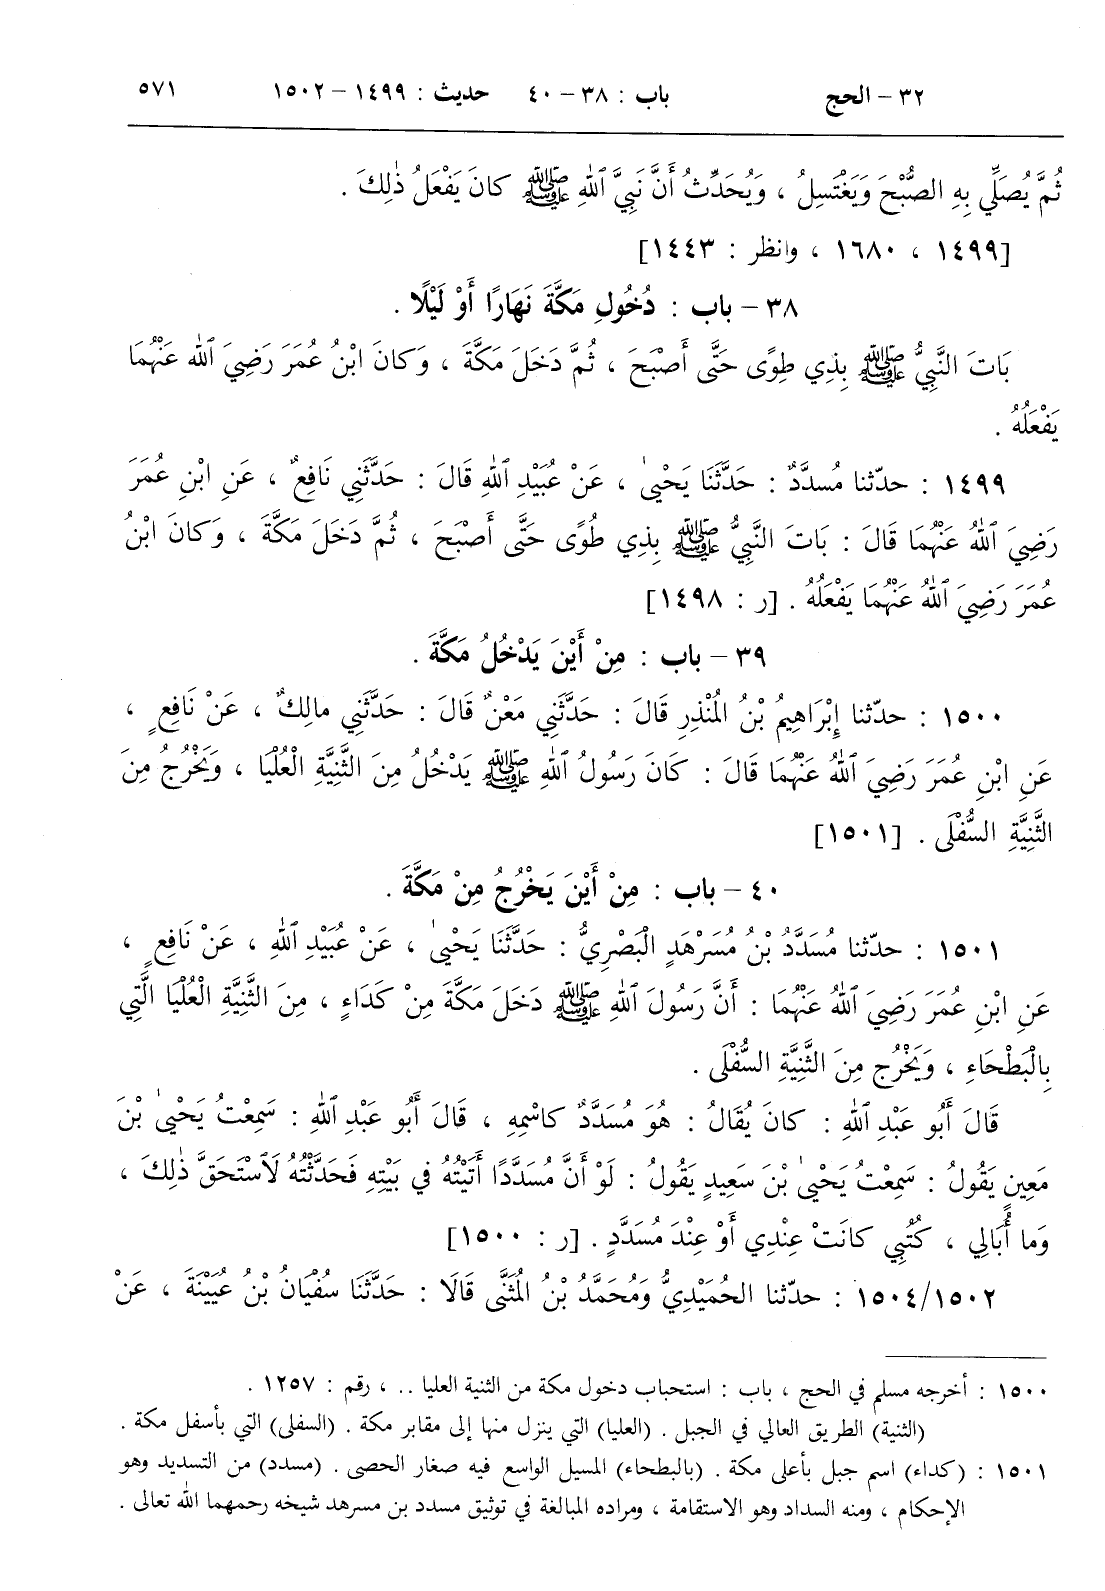 ٣٢ – الحج باب : ٣٨ – ٤٠ حديث : ١٤٩٩ – ١٥٠٢ ٥٧١
ثُمَّ يُصَلِّي بِهِ الصُّبْحَ وَيَغْتَسِلُ ، وَيُحَدِّثُ أَنَّ نَبِيَّ ٱللهِ ﷺ كانَ يَفْعَلُ ذٰلِكَ .
[١٤٩٩ ، ١٦٨٠ ، وانظر : ١٤٤٣]
٣٨ – باب : دُخُولِ مَكَّةَ نَهَارًا أَوْ لَيْلًا .
بَاتَ النَّبِيُّ ﷺ بِذِي طِوًى حَتَّى أَصْبَحَ ، ثُمَّ دَخَلَ مَكَّةَ ، وَكانَ ابْنُ عُمَرَ رَضِيَ الله عَنْهُمَا
يَفْعَلُهُ .
١٤٩٩ : حدّثنا مُسدَّدٌ : حَدَّثَنَا يَحْيىٰ ، عَنْ عُبَيْدِ ٱللهِ قَالَ : حَدَّثَنِي نَافِعٌ ، عَنِ ابْنِ عُمَرَ
رَضِيَ ٱللهُ عَنْهُمَا قَالَ : بَاتَ النَّبِيُّ ﷺ بِذِي طُوًى حَتَّى أَصْبَحَ ، ثُمَّ دَخَلَ مَكَّةَ ، وَكانَ ابْنُ
عُمَرَ رَضِيَ ٱللهُ عَنْهُمَا يَفْعَلُهُ . [ر : ١٤٩٨]
٣٩ – باب : مِنْ أَيْنَ يَدْخُلُ مَكَّةَ .
١٥٠٠ : حدّثنا إِبْرَاهِيمُ بْنُ الْمُنْذِرِ قَالَ : حَدَّثَنِي مَعْنٌ قَالَ : حَدَّثَنِي مالِكٌ ، عَنْ نَافِعٍ ،
عَنِ ابْنِ عُمَرَ رَضِيَ ٱللهُ عَنْهُمَا قَالَ : كَانَ رَسُولُ ٱللهِ ﷺ يَدْخُلُ مِنَ الثَّنِيَّةِ الْعُلْيَا ، وَيَخْرُجُ مِنَ
الثَّنِيَّةِ السُّفْلَى . [١٥٠١]
٤٠ – باب : مِنْ أَيْنَ يَخْرُجُ مِنْ مَكَّةَ .
١٥٠١ : حدّثنا مُسَدَّدُ بْنُ مُسَرْهَدٍ الْبَصْرِيُّ : حَدَّثَنَا يَحْيىٰ ، عَنْ عُبَيْدِ ٱللهِ ، عَنْ نَافِعٍ ،
عَنِ ابْنِ عُمَرَ رَضِيَ ٱللهُ عَنْهُمَا : أَنَّ رَسُولَ ٱللهِ ﷺ دَخَلَ مَكَّةَ مِنْ كَدَاءٍ ، مِنَ الثَّنِيَّةِ الْعُلْيَا الَّتِي
بِالْبَطْحَاءِ ، وَيَخْرُج مِنَ الثَّنِيَّةِ السُّفْلَى .
قَالَ أَبُو عَبْدِ ٱللهِ : كانَ يُقَالُ : هُوَ مُسَدَّدٌ كاسْمِهِ ، قَالَ أَبُو عَبْدِ ٱللهِ : سَمِعْتُ يَحْيىٰ بْنَ
مَعِينٍ يَقُولُ : سَمِعْتُ يَحْيىٰ بْنَ سَعِيدٍ يَقُولُ : لَوْ أَنَّ مُسَدَّدًا أَتَيْتُهُ فِي بَيْتِهِ فَحَدَّثْتُهُ لَاسْتَحَقَّ ذٰلِكَ ،
وَما أُبَالِي ، كُتُبِي كانَتْ عِنْدِي أَوْ عِنْدَ مُسَدَّدٍ . [ر : ١٥٠٠]
١٥٠٢/١٥٠٤ : حدّثنا الحُمَيْدِيُّ وَمُحَمَّدُ بْنُ الْمُثَنَّى قَالَا : حَدَّثَنَا سُفْيَانُ بْنُ عُيَيْنَةَ ، عَنْ
١٥٠٠ : أخرجه مسلم في الحج ، باب : استحباب دخول مكة من الثنية العليا .. ، رقم : ١٢٥٧ .
(الثنية) الطريق العالي في الجبل . (العليا) التي ينزل منها إلى مقابر مكة . (السفلى) التي بأسفل مكة .
١٥٠١ : (كداء) اسم جبل بأعلى مكة . (بالبطحاء) المسيل الواسع فيه صغار الحصى . (مسدد) من التسديد وهو
الإحكام ، ومنه السداد وهو الاستقامة ، ومراده المبالغة في توثيق مسدد بن مسرهد شيخه رحمهما الله تعالى .